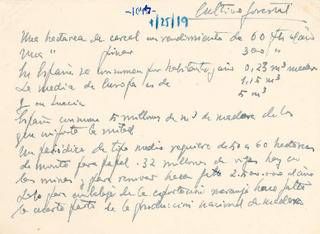 -1049-
1/25/19
Cultivo forestal
Una hectarea de cereal un rendimiento de 60 Pts al año
Una " pinar 300 "
En España se consumen por habitante y año 0,23 m³ madera
La media de Europa es de 1,15 m³
en Suecia 5 m³
España consume 5 millones de m³ de madera de los
que importa la mitad
Un periódico de tipo medio requiere de 50 a 60 hectareas
de monte para papel. 32 millones de vigas hay en
las minas y para renovar hacen falta 2.500.000 al año
Solo para embalaje de la exportación naranja hace falta
la cuarta parte de la producción nacional de madera